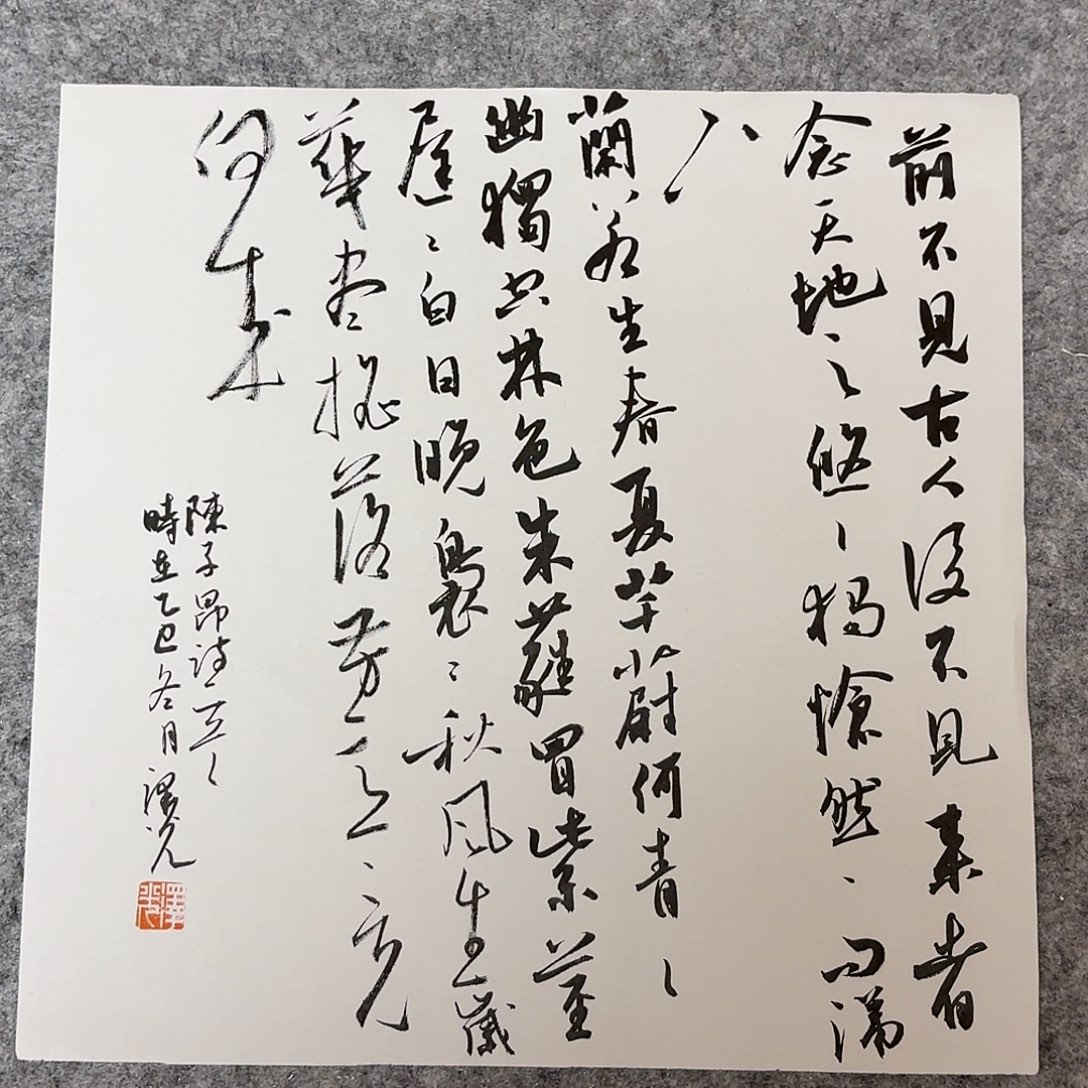 前不見古人後不見來者
念天地之悠々獨愴然而涕
下
蘭若生春夏芊蔚何青々
幽獨空林色朱蕤冒紫莖
遲々白日晚裊々秋風生歲
華盡搖落芳意竟
何成
陳子昂詩
時在乙巳冬月澤光
澤光